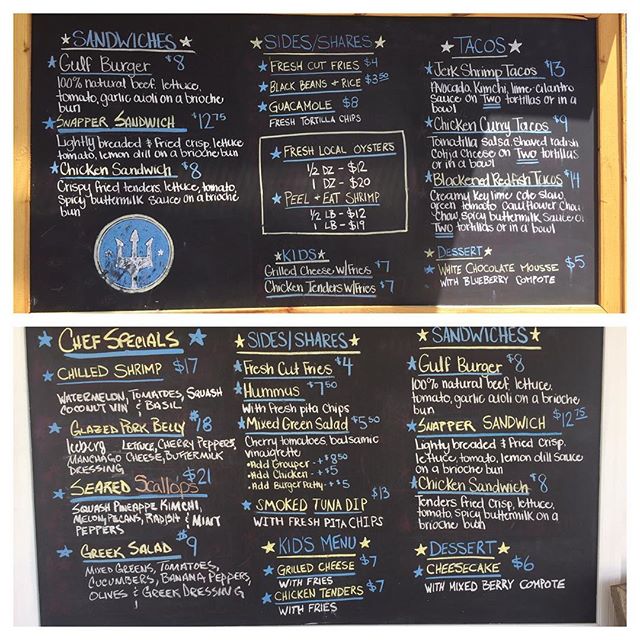 SANDWICHES
Gulf Burger $8
100% natural beef, lettuce,
tomato, garlic aioli on a brioche
bun
SNAPPER SANDWICH $12.75
Lightly breaded & fried crisp, lettuce
tomato, lemon dill on a brioche bun
Chicken Sandwich $8
Crispy fried tenders, lettuce, tomato,
spicy buttermilk sauce on a brioche
bun
SIDES/SHARES
FRESH CUT FRIES $4
BLACK BEANS & RICE $3.50
GUACAMOLE $8
FRESH TORTILLA CHIPS
FRESH LOCAL OYSTERS
1/2 DZ - $12
1 DZ - $20
PEEL & EAT SHRIMP
1/2 LB - $12
1 LB - $19
KIDS
Grilled Cheese w/Fries $7
Chicken Tenders w/Fries $7
TACOS
Jerk Shrimp Tacos $13
Avocado, Kimchi, lime-cilantro
sauce on Two tortillas or in a
bowl
Chicken Curry Tacos $9
Tomatilla salsa, shaved radish
Cotija Cheese on Two tortillas
or in a bowl
Blackened Redfish Tacos $14
Creamy Key lime cole slaw,
green tomato cauliflower Chow
Chow, spicy buttermilk sauce on
Two tortillas or in a bowl
DESSERT
WHITE CHOCOLATE MOUSSE $5
WITH BLUEBERRY COMPOTE
CHEF SPECIALS
CHILLED SHRIMP $17
WATERMELON, TOMATOES, SQUASH
COCONUT VIN & BASIL
GLAZED PORK BELLY $18
Iceberg LETTUCE, CHERRY PEPPERS,
MANCHAGO CHEESE, BUTTERMILK
DRESSING
SEARED Scallops $21
SQUASH PINEAPPLE KIMCHI,
MELON, PECANS, RADISH & MINT
PEPPERS
GREEK SALAD $9
MIXED GREENS, TOMATOES,
CUCUMBERS, BANANA PEPPERS,
OLIVES & GREEK DRESSING
SIDES/SHARES
Fresh Cut Fries $4
Hummus $7.50
With Fresh pita Chips
Mixed Green Salad $5.50
Cherry tomatoes balsamic
vinaigrette
Add Grouper - +$8.50
Add Chicken - +$5
Add Burger Patty - +$5
SMOKED TUNA DIP $13
WITH FRESH PITA CHIPS
KID'S MENU
GRILLED CHEESE $7
WITH FRIES
CHICKEN TENDERS $7
WITH FRIES
SANDWICHES
Gulf Burger $8
100% natural beef, lettuce,
tomato, garlic aioli on a brioche
bun
SNAPPER SANDWICH $12.75
Lightly breaded & fried crisp,
lettuce, tomato, lemon dill sauce
on a brioche bun
Chicken Sandwich $8
Tenders fried crisp, lettuce,
tomato, spicy buttermilk on a
brioche bun
DESSERT
CHEESECAKE $6
WITH MIXED BERRY COMPOTE